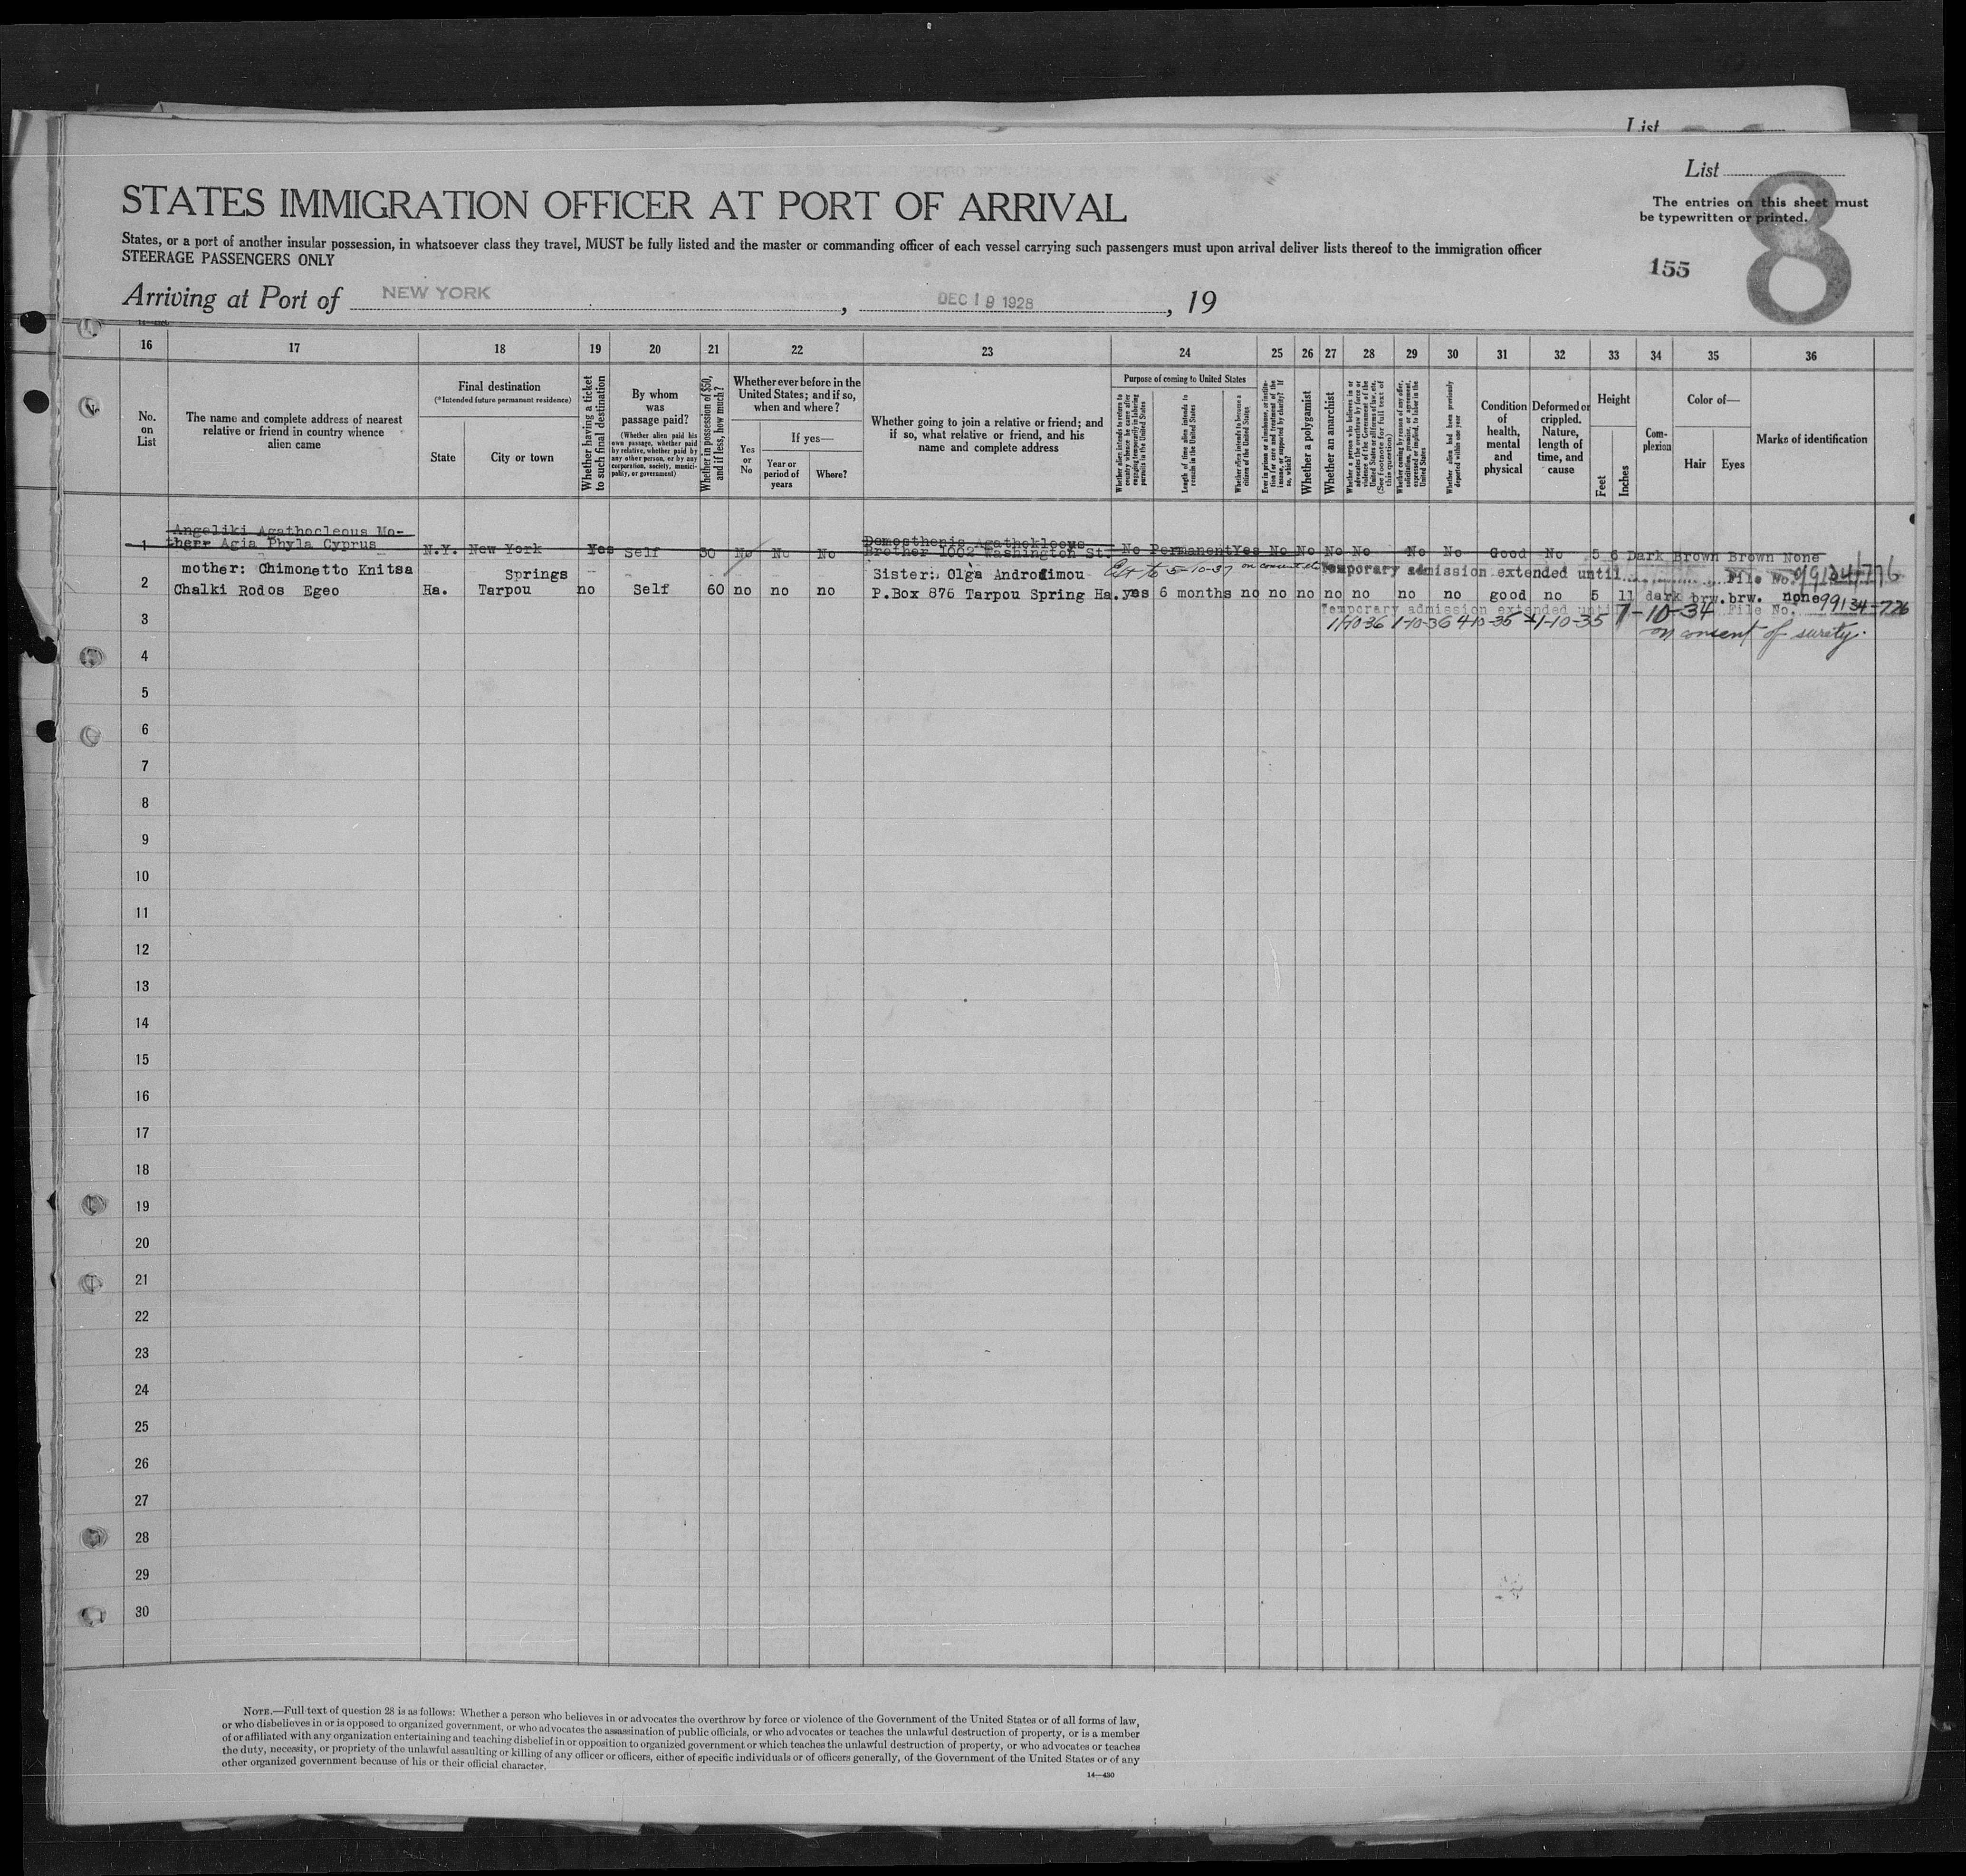 List
List
The entries on this sheet must
be typewritten or printed.
8
155
STATES IMMIGRATION OFFICER AT PORT OF ARRIVAL
States, or a port of another insular possession, in whatsoever class they travel, MUST be fully listed and the master or commanding officer of each vessel carrying such passengers must upon arrival deliver lists thereof to the immigration officer
STEERAGE PASSENGERS ONLY
Arriving at Port of NEW YORK, DEC 19 1928, 19
16 17 18 19 20 21 22 23 24 25 26 27 28 29 30 31 32 33 34 35 36
No.
on
List
The name and complete address of nearest
relative or friend in country whence
alien came
Final destination
(*Intended future permanent residence)
State
City or town
Whether having a ticket
to such final destination
By whom
was
passage paid?
(Whether alien paid his
own passage, whether paid
by relative, whether paid by
any other person, or by any
corporation, society, munici-
pality, or government)
Whether in possession of $50,
and if less, how much?
Whether ever before in the
United States; and if so,
when and where?
Yes
or
No
If yes—
Year or
period of
years
Where?
Whether going to join a relative or friend; and
if so, what relative or friend, and his
name and complete address
Purpose of coming to United States
Whether alien intends to return to
country whence he came after
engaging temporarily in laboring
pursuits in the United States
Length of time alien intends to
remain in the United States
Whether alien intends to become a
citizen of the United States
Ever in prison or almshouse, or institu-
tion for care and treatment of the
insane, or supported by charity? If
so, which?
Whether a polygamist
Whether an anarchist
Whether a person who believes in or
advocates the overthrow by force or
violence of the Government of the
United States or all forms of law, etc.
(See footnote for full text of
this question)
Whether coming by reason of any offer,
solicitation, promise, or agreement,
expressed or implied, to labor in the
United States
Whether alien had been previously
deported within one year
Condition
of
health,
mental
and
physical
Deformed or
crippled.
Nature,
length of
time, and
cause
Height
Feet
Inches
Com-
plexion
Color of—
Hair
Eyes
Marks of identification
Angeliki Agathocleous Mo-
1 ther Agia Phyla Cyprus N.Y. New York Yes Self 30 No No No
Demosthenis Agathokleous
Brother 1002 Washington St. No Permanent Yes No No No No No No Good No 5 6 Dark Brown Brown None
mother: Chimonetto Knitsa Springs Sister: Olga Androdimou Ext to 5-10-37 on consent Temporary admission extended until File No. 99134/776
2 Chalki Rodos Egeo Ha. Tarpou no Self 60 no no no P.Box 876 Tarpou Spring Ha. yes 6 months no no no no no no no good no 5 11 dark brw. brw. none 99134-776
Temporary admission extended until 7-10-34 File No.
3 1-10-36 1-10-36 4-10-35 1-10-35
on consent of surety.
4
5
6
7
8
9
10
11
12
13
14
15
16
17
18
19
20
21
22
23
24
25
26
27
28
29
30
NOTE.—Full text of question 28 is as follows: Whether a person who believes in or advocates the overthrow by force or violence of the Government of the United States or of all forms of law,
or who disbelieves in or is opposed to organized government, or who advocates the assassination of public officials, or who advocates or teaches the unlawful destruction of property, or is a member
of or affiliated with any organization entertaining and teaching disbelief in or opposition to organized government or which teaches the unlawful destruction of property, or who advocates or teaches
the duty, necessity, or propriety of the unlawful assaulting or killing of any officer or officers, either of specific individuals or of officers generally, of the Government of the United States or of any
other organized government because of his or their official character.
14—430